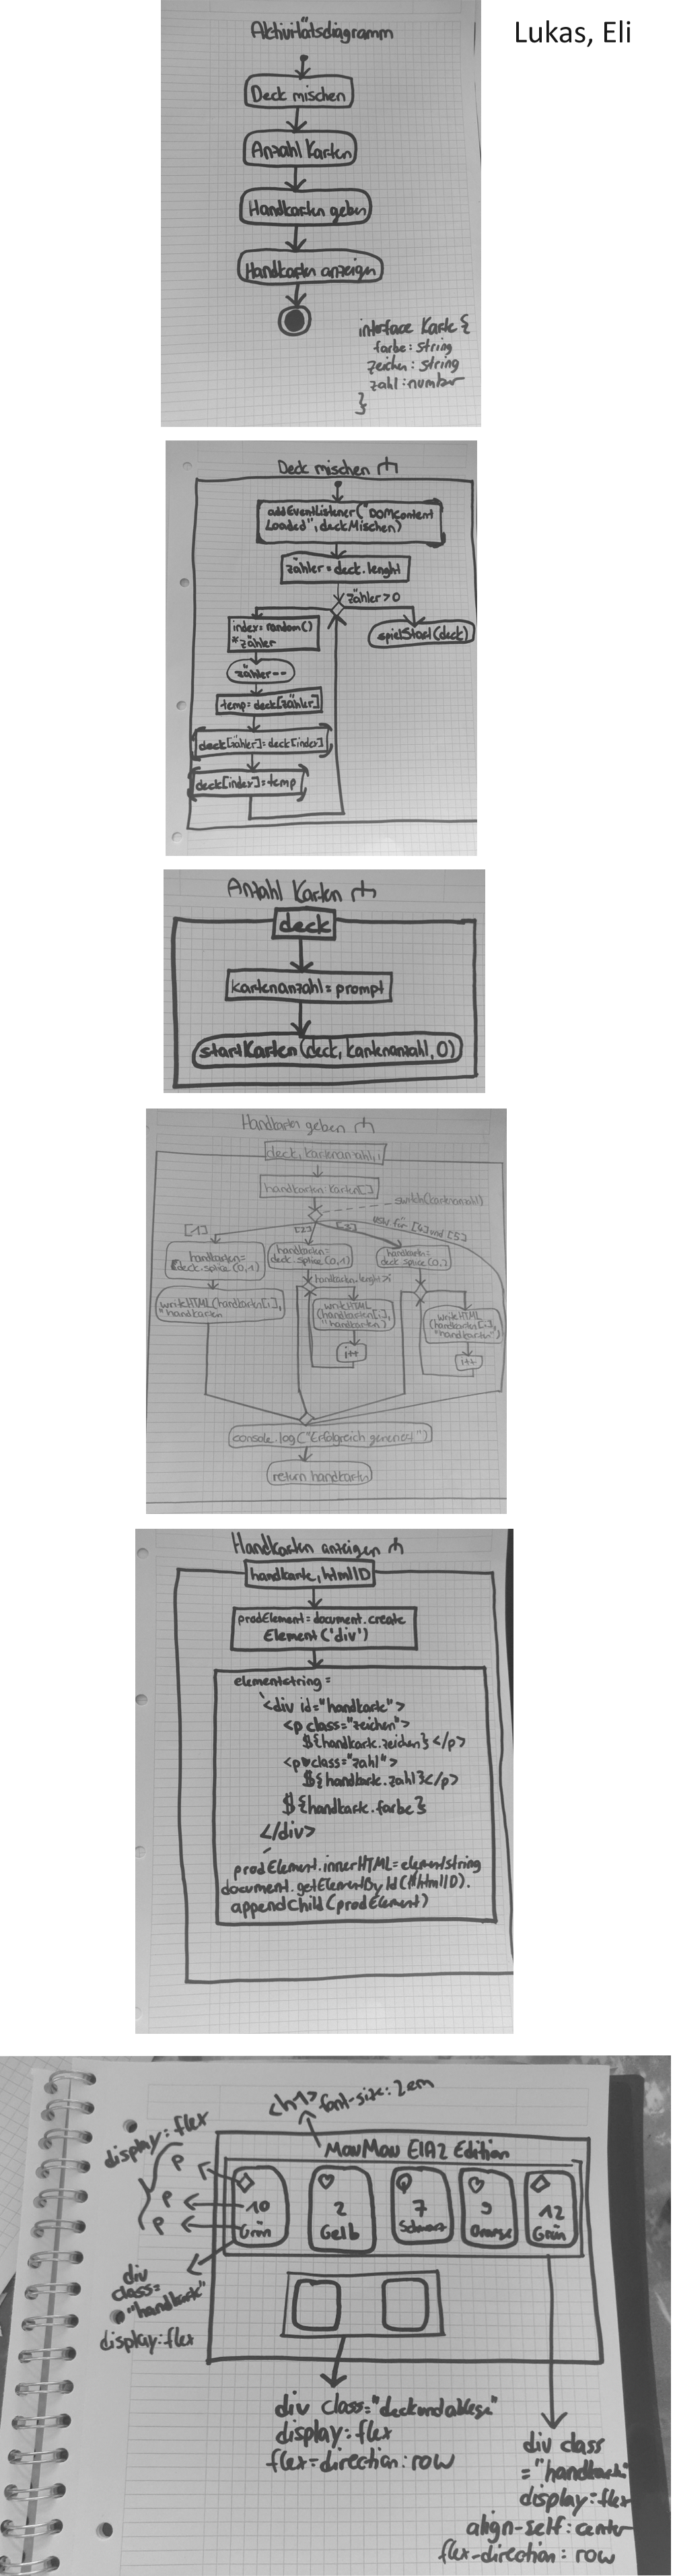 Lukas, Eli
Aktivitätsdiagramm
Deck mischen
Anzahl Karten
Handkarten geben
Handkarten anzeigen
interface Karte {
farbe: string
zeichen: string
zahl: number
}
Deck mischen
addEventListener("DOMContent
Loaded", deckMischen)
zähler = deck.lenght
zähler > 0
index = random()
* zähler
spielStart(deck)
zähler--
temp = deck[zähler]
deck[zähler] = deck[index]
deck[index] = temp
Anzahl Karten
deck
kartenanzahl = prompt
startKarten(deck, kartenanzahl, 0)
Handkarten geben
deck, kartenanzahl, i
handkarten: Karten[]
switch(kartenanzahl)
[1]
[2]
[3]
usw für [4] und [5]
handkarten=
deck.splice(0,1)
handkarten=
deck.splice(0,1)
handkarten=
deck.splice(0,2)
handkarten.lenght>i
writeHTML(handkarten[i],
"handkarten
writeHTML
(handkarten[i],
"handkarten")
writeHTML
(handkarten[i],
"handkarten")
i++
i++
console.log("Erfolgreich generiert")
return handkarten
Handkarten anzeigen
handkarte, htmlID
prodElement = document.create
Element('div')
elementstring =
`<div id="handkarte">
<p class="zeichen">
${handkarte.zeichen}</p>
<p class="zahl">
${handkarte.zahl}</p>
${handkarte.farbe}
</div>
`
prodElement.innerHTML = elementstring
document.getElementById(htmlID).
appendChild(prodElement)
<h1> font-size: 2em
display: flex
MauMau EIA2 Edition
p
p
p
10
2
7
9
12
Grün
Gelb
Schwarz
Orange
Grün
div
class=
"handkarte"
display: flex
div class="deckundablage"
display: flex
flex-direction: row
div class
="handkarte"
display: flex
align-self: center
flex-direction: row